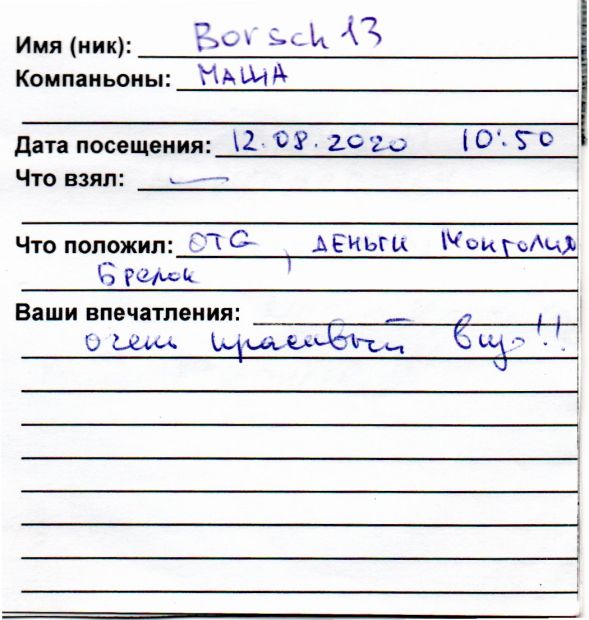 Имя (ник): Borsch 13
Компаньоны: МАША
Дата посещения: 12.08.2020 10:50
Что взял: —
Что положил: OTG, ДЕНЬГИ Монголия
Брелок
Ваши впечатления:
очень красивый вид!!